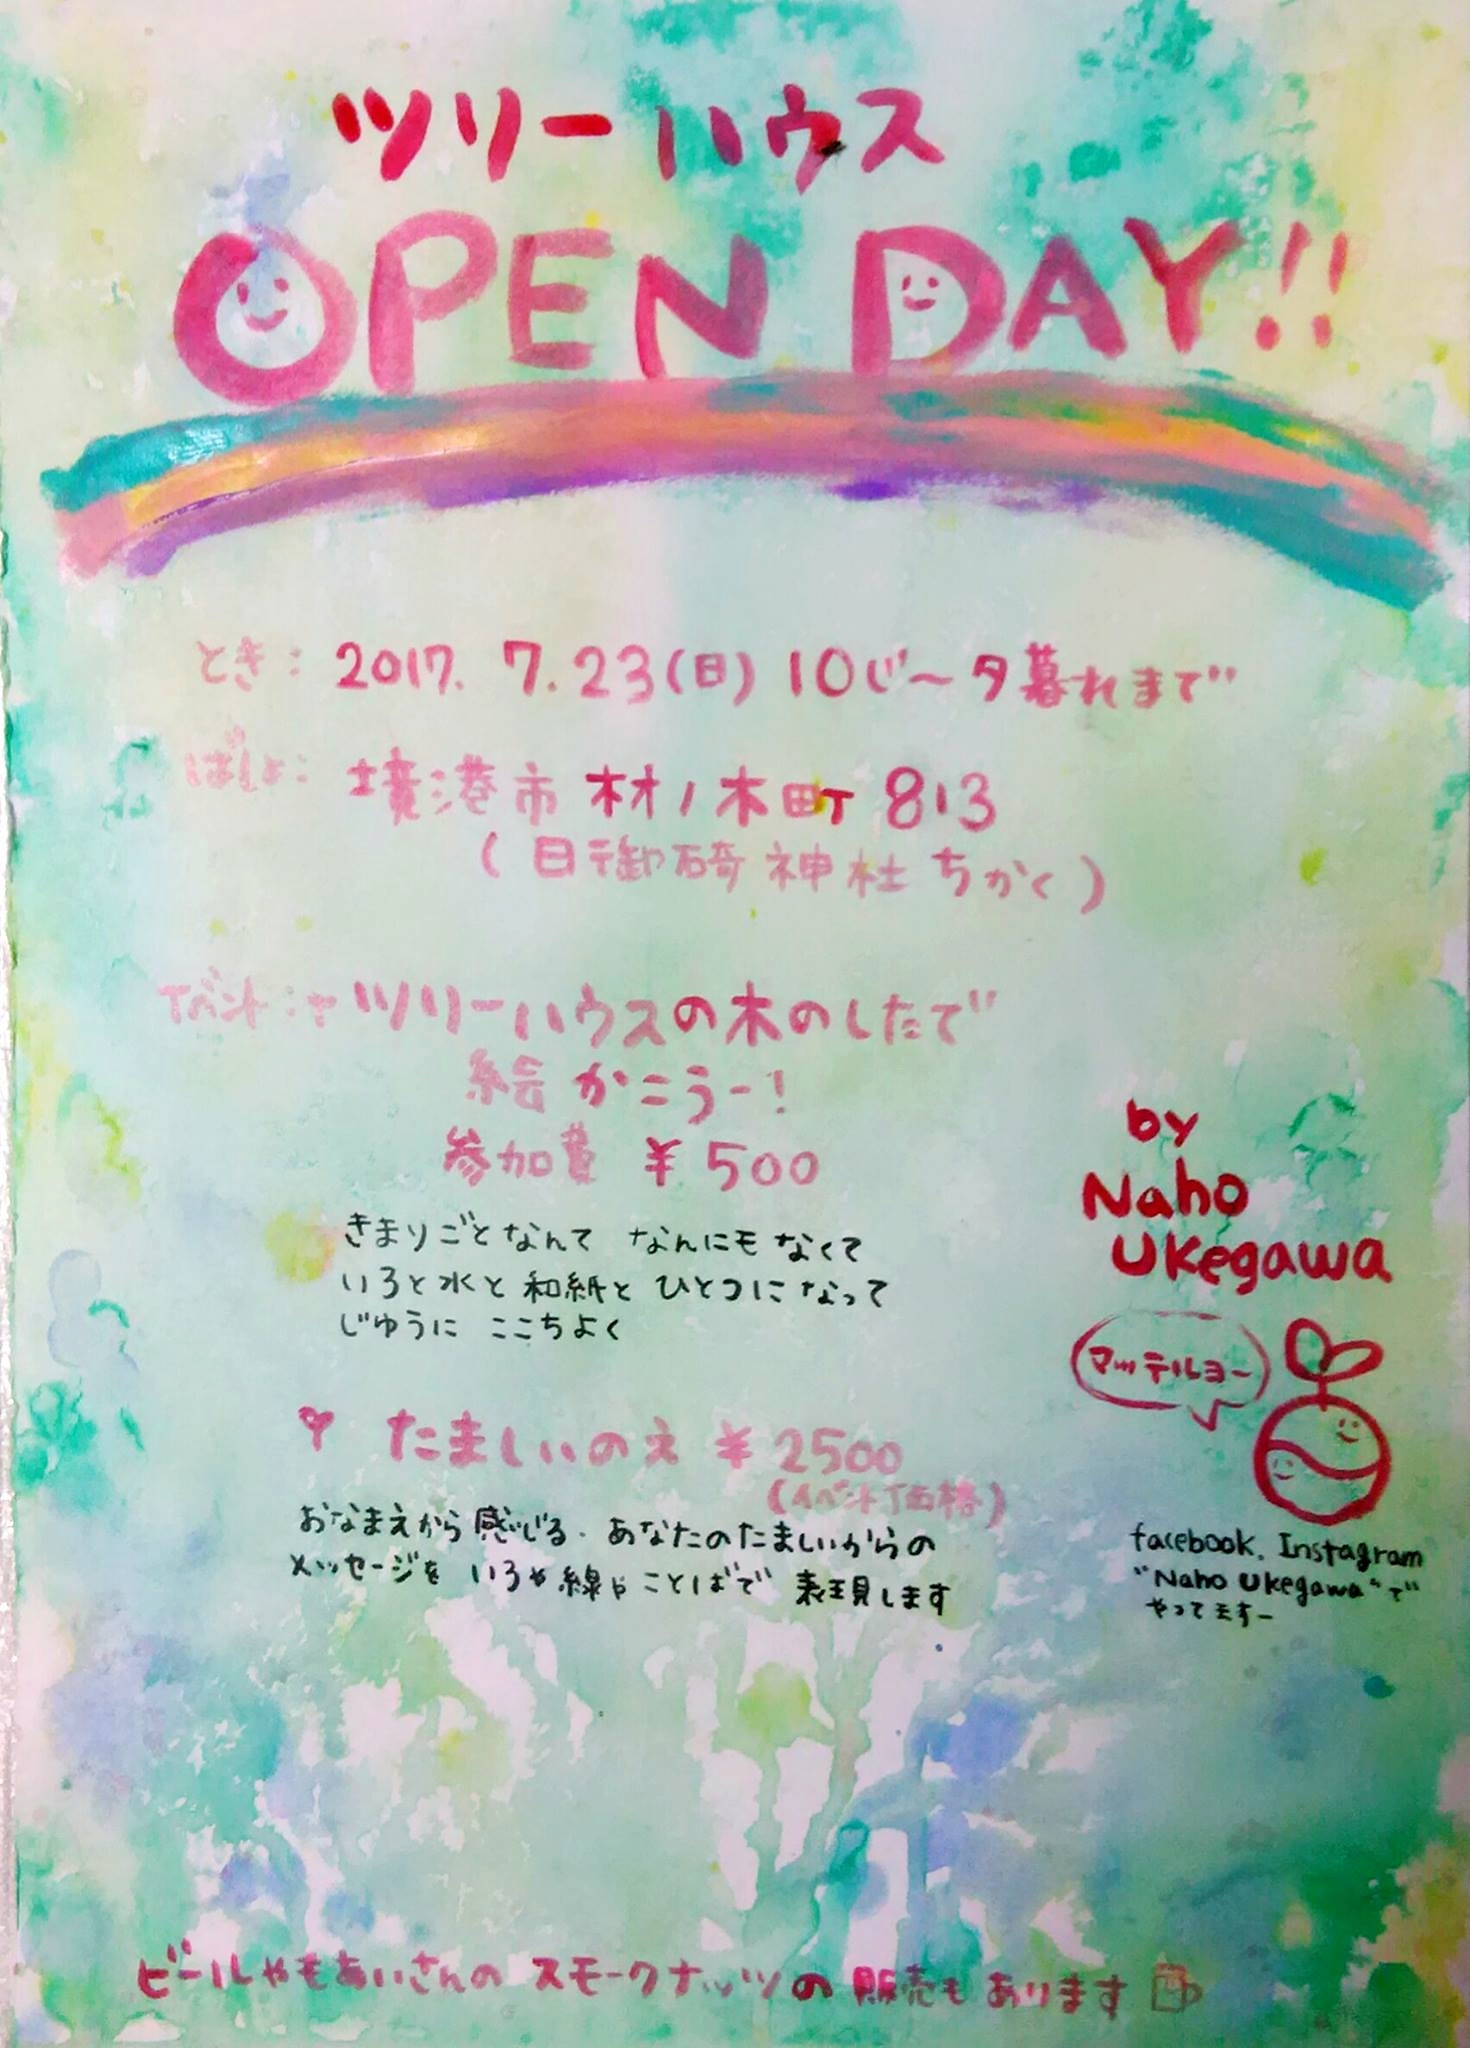 ツリーハウス
OPEN DAY!!
とき: 2017. 7. 23(日) 10じ〜夕暮れまで
ばしょ: 境港市 材ノ木町 813
(日御碕神社 ちかく)
イベント: ♥ツリーハウスの木のしたで
絵 かこうー!
参加費 ¥500
きまりごとなんて なんにもなくて
いろと水と和紙と ひとつになって
じゆうに ここちよく
by
Naho
Ukegawa
マッテルヨー
♥ たましいのえ ¥2500
(イベント価格)
おなまえから感じる、あなたのたましいからの
メッセージを いろや線や ことばで 表現します
facebook. Instagram
"Naho Ukegawa"で
やってますー
ビールやもあいさんの スモークナッツの 販売もあります